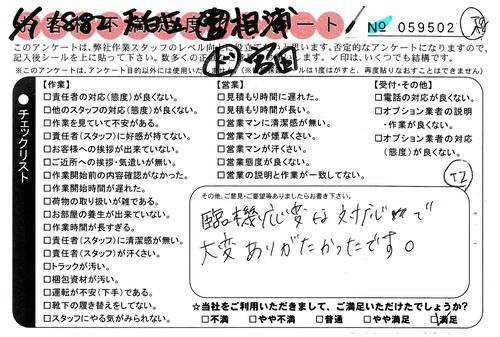 お客様不満足度アンケート
№ 059502
6882
相浦
このアンケートは、弊社作業スタッフのレベル向上に役立てたいと思います。否定的なアンケートになりますので、
記入後シールを上に貼って下さい。
✓印は、いくつでも結構です。
【作業】
□責任者の対応(態度)が良くない。
□他のスタッフの対応(態度)が良くない。
□作業を見ていて不安がある。
□責任者(スタッフ)に好感が持てない。
□お客様への挨拶が出来ていない。
□ご近所への挨拶・気遣いが無い。
□作業開始前の内容確認がなかった。
□作業開始時間が遅れた。
□荷物の取り扱いが雑である。
□お部屋の養生が出来ていない。
□作業時間が長すぎる。
□責任者(スタッフ)に清潔感が無い。
□責任者(スタッフ)が汗くさい。
□トラックが汚い。
□梱包資材が汚い。
□運転が不安(下手)である。
□靴下の履き替えをしてない。
□スタッフにやる気がみられない。
【営業】
□見積もり時間に遅れた。
□見積もり時間が長い。
□営業マンに清潔感が無い。
□営業マンが煙草くさい。
□営業マンが汗くさい。
□営業態度が良くない。
□営業の説明と作業が一致してない。
【受付・その他】
□電話の対応が良くない。
□オプション業者の説明
・作業が良くない。
□オプション業者の対応
(態度)が良くない。
●チェックリスト
その他、ご意見・ご要望等ありましたらお書き下さい。
臨機応変な対応で
大変ありがたかったです。
☆当社をご利用いただきまして、ご満足いただけたでしょうか?
□不満 □やや不満 □普通 □やや満足 □満足